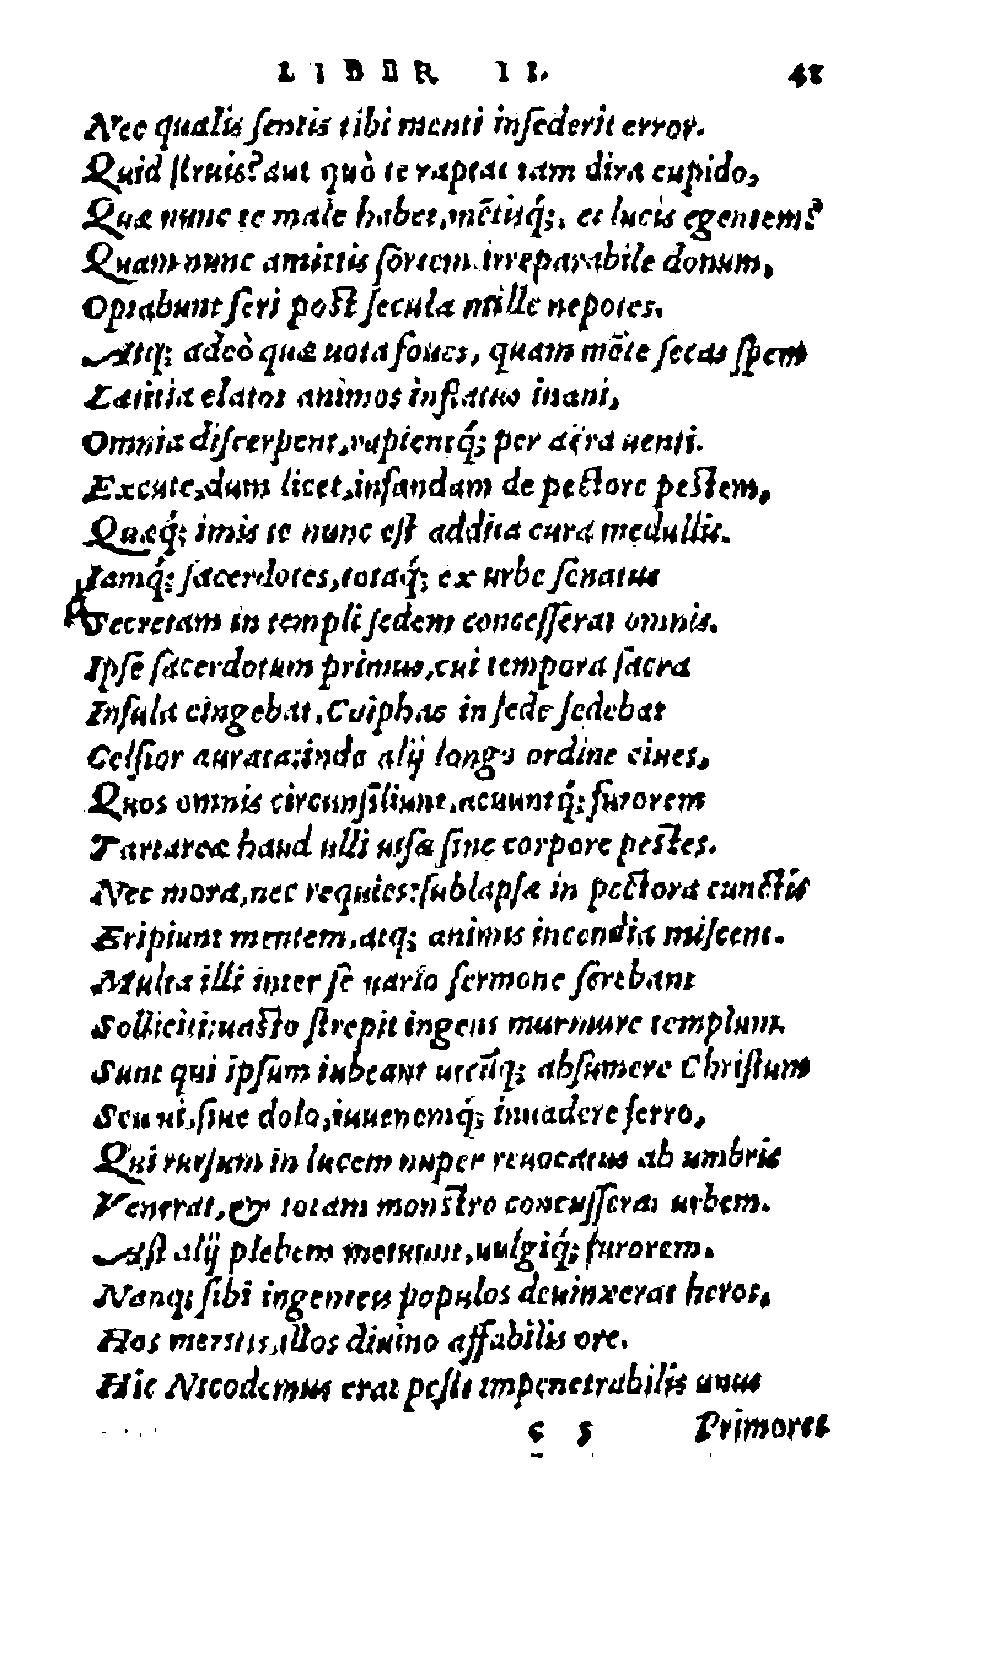 LIBER II. 41
Nec qualis sentis tibi menti insederit error.
Quid struis? aut quò te raptat tam dira cupido,
Quæ nunc te male habet, mẽtisq́;, et lucis egentem?
Quam nunc amittis sortem irreparabile donum,
Optabunt seri post secula mille nepotes.
Atq; adeò quæ uota foues, quam mẽte secas spem
Lætitia elatos animos inflatus inani,
Omnia discerpent, rapientq́; per aëra uenti.
Excute, dum licet, infandam de pectore pestem,
Quæq́; imis te nunc est addita cura medullis.
Iamq́; sacerdotes, totaq́; ex urbe senatus
Secretam in templi sedem concesserat omnis.
Ipse sacerdotum primus, cui tempora sacra
Insula cingebat, Caiphas in sede sedebat
Celsior aurata: inde alij longo ordine ciues,
Quos omnis circunsiliunt, acuuntq́; furorem
Tartareæ haud ulli uisæ sine corpore pestes.
Nec mora, nec requies: sublapsæ in pectora cunctis
Eripiunt mentem, atq; animis incendia miscent.
Multa illi inter se uario sermone serebant
Solliciti: uasto strepit ingens murmure templum.
Sunt qui ipsum iubeant utcũq; absumere Christum
Seu ui, siue dolo, iuuenemq́; inuadere ferro,
Qui rursum in lucem nuper reuocatus ab umbris
Venerat, & totam monstro concusserat urbem.
Ast alij plebem metuunt, uulgiq́; furorem.
Nanq; sibi ingenteis populos deuinxerat heros,
Hos meritis, illos diuino affabilis ore.
Hic Nicodemus erat pesti impenetrabilis unus
c 5 Primores